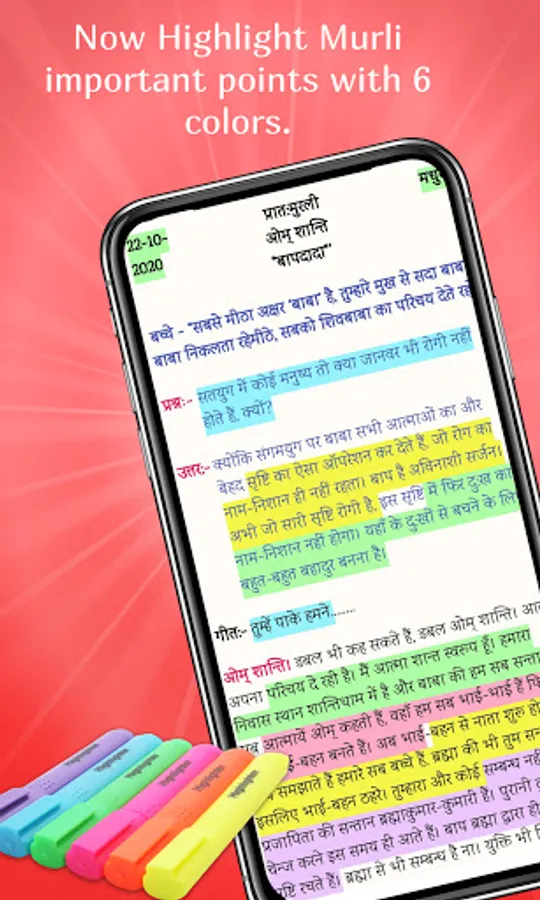 Now Highlight Murli
important points with 6
colors.
22-10-
2020
प्रातःमुरली
ओम् शान्ति
"बापदादा"'
मधु
बच्चे - "सबसे मीठा अक्षर 'बाबा' है, तुम्हारे मुख से सदा बाबा
बाबा निकलता रहेमीठे, सबको शिवबाबा का परिचय देते रहो
प्रश्नः- सतयुग में कोई मनुष्य तो क्या जानवर भी रोगी नहीं
होते हैं, क्यों?
उत्तर:- क्योंकि संगमयुग पर बाबा सभी आत्माओं का और
बेहद सृष्टि का ऐसा ऑपरेशन कर देते हैं, जो रोग का
नाम-निशान ही नहीं रहता। बाप है अविनाशी सर्जन।
अभी जो सारी सृष्टि रोगी है, इस सृष्टि में फिर दुःख का
नाम-निशान नहीं होगा। यहाँ के दुःखों से बचने के लि
बहुत-बहुत बहादुर बनना है।
गीत:- तुम्हें पाके हमने.......
ओम् शान्ति। डबल भी कह सकते हैं, डबल ओम् शान्ति।
अपना परिचय दे रही है। मैं आत्मा शान्त स्वरूप हूँ। हमारा
निवास स्थान शान्तिधाम में है और बाबा की हम सब सन्ता
आत्मायें ओम् कहती हैं, वहाँ हम सब भाई-भाई हैं फि
भाई-बहन बनते हैं। अब भाई-बहन से नाता शुरू हो
समझाते हैं हमारे सब बच्चे हैं, ब्रह्मा की भी तुम सन
इसलिए भाई-बहन ठहरे। तुम्हारा और कोई सम्बन्ध नहीं
प्रजापिता की सन्तान ब्रह्माकुमार-कुमारी हैं। पुरानी
चेन्ज करने इस समय ही आते हैं। बाप ब्रह्मा द्वारा ही
सृष्टि रचते हैं। ब्रह्मा से भी सम्बन्ध है ना। युक्ति भी